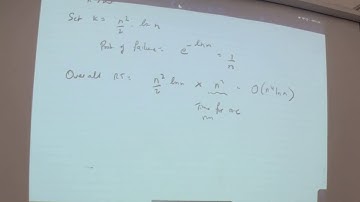 Set K = n²/2 · ln n
Prob of failure: e^(-ln n) = 1/n
Overall RT: n²/2 ln n × n² = O(n⁴ ln n)
Time for one
run